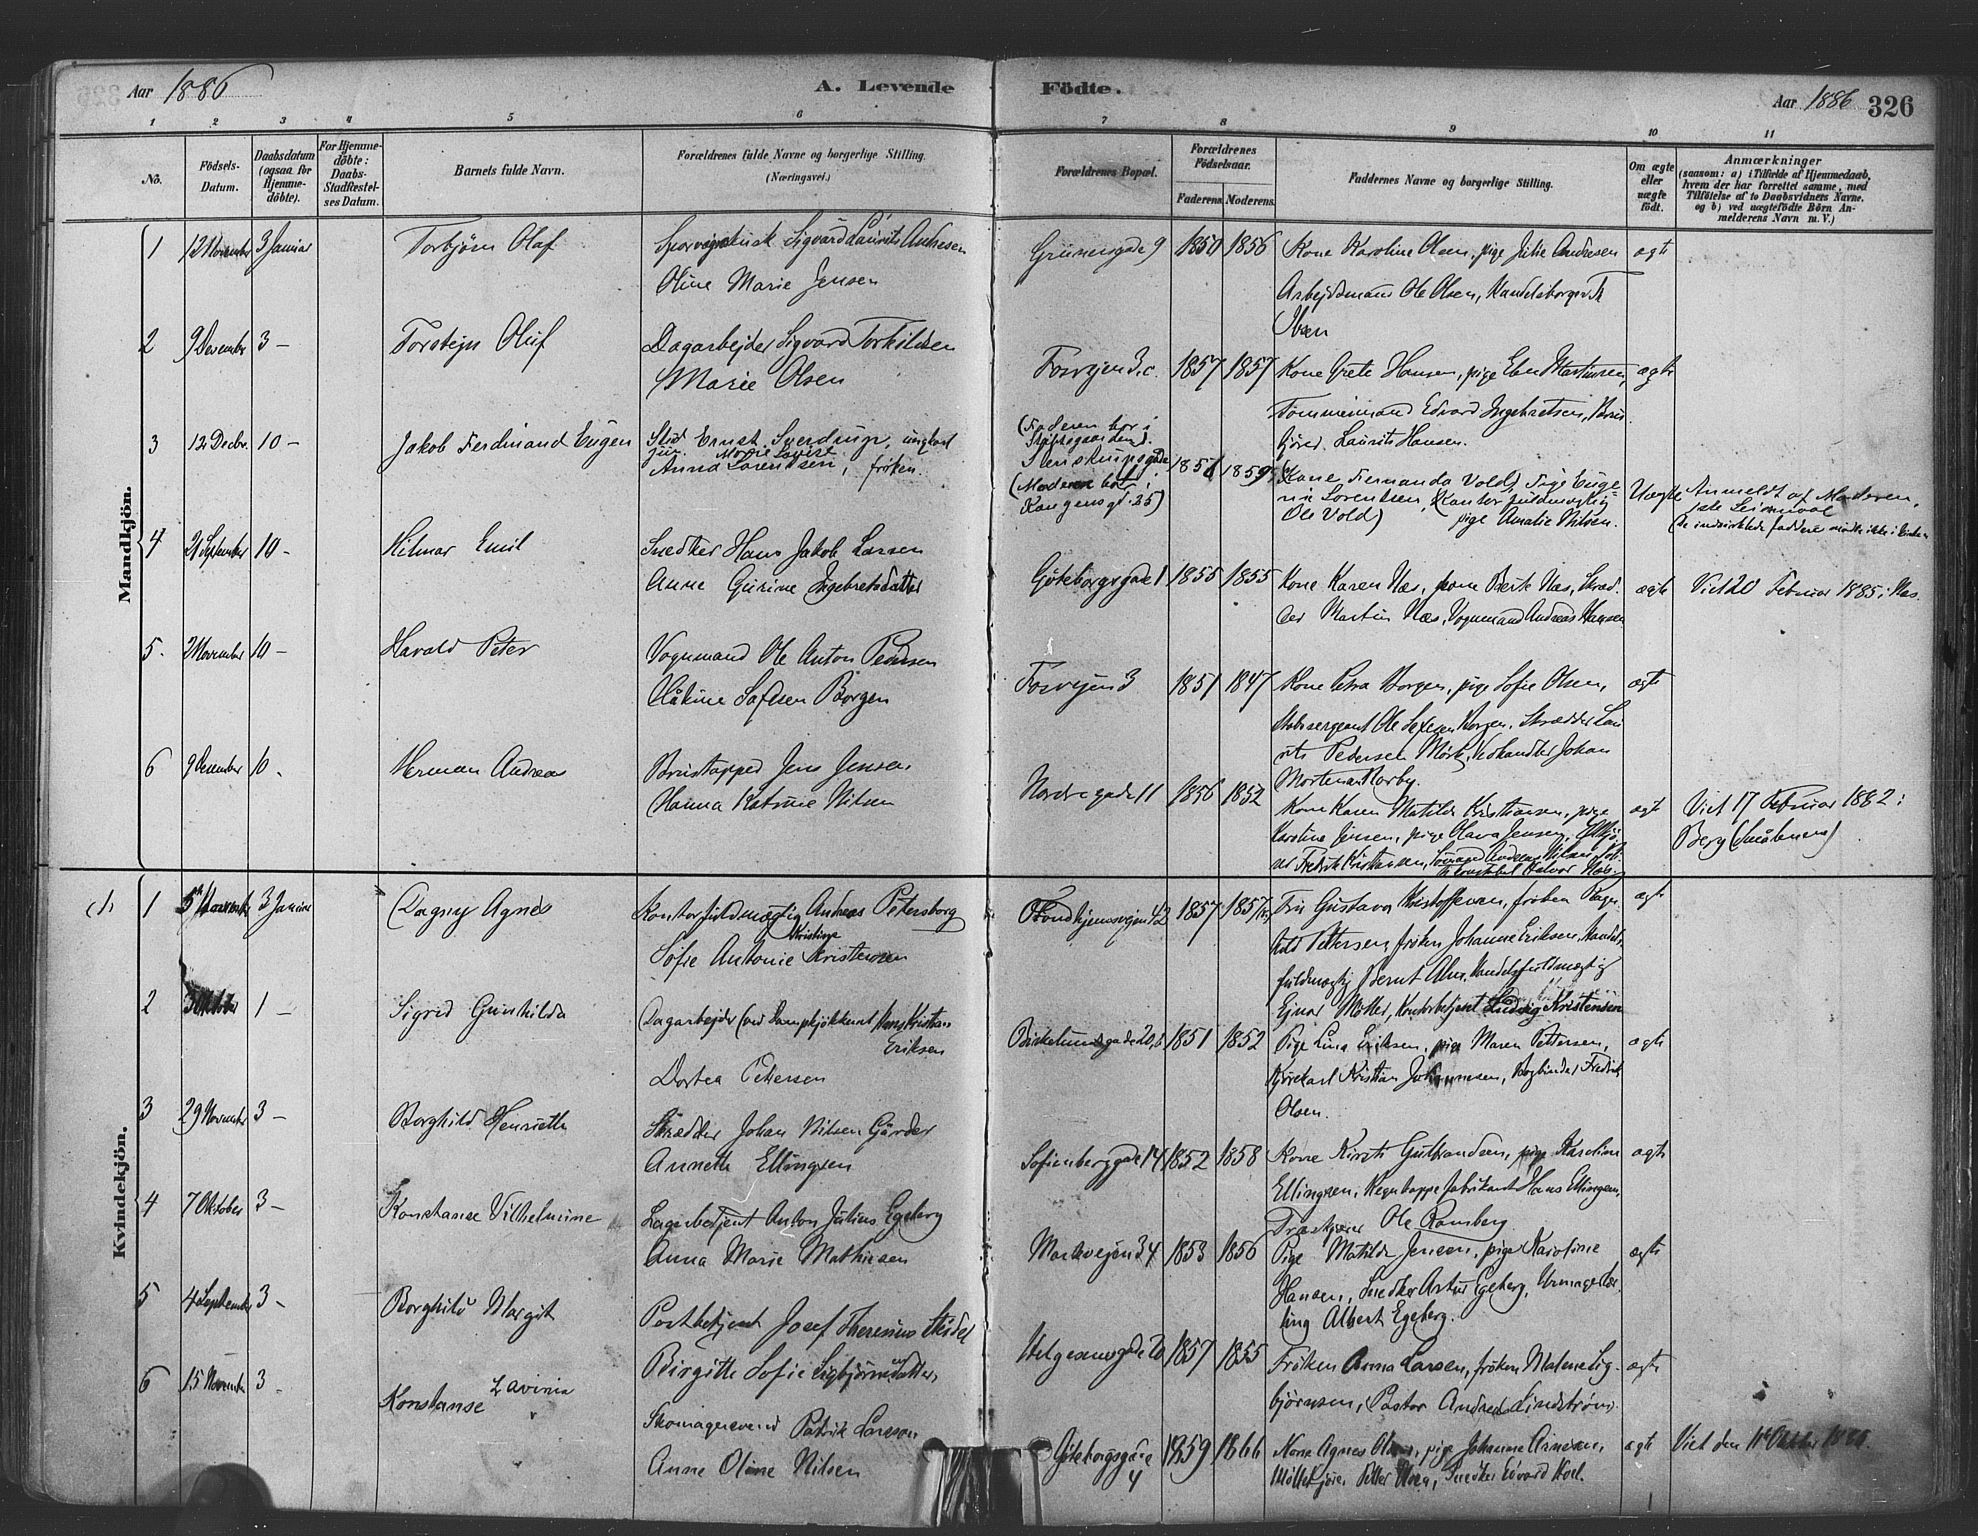 Aar 1886
A. Levende
Födte.
Aar 1886 326
1 2 3 4 5 6 7 8 9 10 11
No.
Födsels-Datum.
Daabsdatum (ogsaa for Hjemme-döbte).
For Hjemme-döbte: Daabs-Stadfæstel-ses Datum.
Barnets fulde Navn.
Forældrenes fulde Navne og borgerlige Stilling.
(Næringsvei.)
Forældrenes Bopæl.
Forældrenes Födselsaar.
Faderens. Moderens.
Faddernes Navne og borgerlige Stilling.
Om ægte eller uægte födt.
Anmærkninger
(saasom: a) i Tilfælde af Hjemmedaab,
hvem der har forrettet samme, med
Tilföielse af to Daabsvidners Navne,
og b) ved uægtefödte Börn An-
melderens Navn m. V.)
Mandkjön.
1 12 November 3 Januar Torbjörn Olaf Sigvard Laurits Andresen
Oline Marie Jensen
Grünersgade 9 1850 1856 Kone Karoline Olsen, pige Julie Andresen ægte
Arbejdsmand Ole Olsen, Handelsborger
Ibsen
2 9 Desember 3 – Torstejn Oluf Dagarbejder Sigvard Torkildsen
Marie Olsen
Fosvejen 3.c. 1857 1857 Kone Grete Hansen, pige Elen Martinsen, ægte
Tömmermand Edvard Ingebretsen,
Laurits Hansen.
3 12 Decbr. 10 – Jakob Ferdinand Eugen Stud. Ernst Sverdrup, ungkarl
Anna Marie Lovise Lorentsen, fröken.
(Faderen bor i
Stiftsgaarden).
(Moderen bor i
Kongensgd. 25)
1859 (Kone Fernanda Vold) Frk. Euge-
nie Lorentsen, (Kontorfuldmægtig
Ole Vold) pige Amalie Nilsen.
Uægte Anmeldt af Moderen,
4 21 September 10 – Hilmar Emil Snedker Hans Jakob Larsen
Anne Gurine Ingebretsdatter
Göteborggade 1 1855 1855 Kone Karen Næs, kone Berte Næs, Skræd-
der Martin Næs, Vognmand Andreas Hansen
ægte Viet 20 Februar 1885 i
5. 2 November 10 – Harald Peter Vognmand Ole Anton Pedersen
Håkine Borgen
Fosvejen 3 1851 1847 Kone Petra Borgen, pige Sofie Olsen, ægte
Stabssergeant Ole Borgen, Skrædder Lau-
rits Pedersen Mörk, Vedhandler Johan
Morten Narby.
6 9 Desember 10 – Herman Andreas Brustapper Jens Jensen
Hanna Katrine Nilsen
Nordregade 11 1856 1852 Kone Karen Matilde Kristiansen, pige
Karoline Jensen, pige Olava Jensen,
Fredrik Kristiansen, Andreas Nilsen,
konstabel Halvor
ægte Viet 17 Februar 1882 i
Berg (Smålenene)
Kvindekjön.
1 5 3 Januar Dagny Agnes Kontorfuldmægtig Andreas Petersborg
Sofie Antonie Kristine Kristensen
Trondhjemsvejen 42 1857 1857 Fru Gustava Kristoffersen, fröken Ragn-
hild Pettersen, fröken Johanne Eriksen, Handels-
fuldmægtig Bernt Handelsfuldmægtig
Ejnar Möller, Kontorbetjent Ludvig Kristensen
ægte
2 3 Oktober 1 – Sigrid Gunhilda Dagarbejder (ved Dampkjökkenet) Hans Kristian
Eriksen
Dortea Petersen
Birkelundsgade 20, 1851 1852 Pige Lina Eriksen, pige Maren Pettersen, ægte
Kjörekarl Kristian Johannesen, Bogbinder Fredrik
Olsen.
3 29 November 3 – Borghild Henriette Skrædder Johan Nilsen Gårder
Annette Ellingsen
Sofienberggade 14 1852 1858 Kone Kirsti Gulbrandsen, pige Karoline ægte
Ellingsen, fabrikant Hans Ellingsen,
Ole Ramberg.
4 7 Oktober 3 – Konstanse Vilhelmine Lagerbetjent Anton Julius Egeberg
Anna Marie Mathiesen
Markvejen 34 1853 1856 Pige Matilde Jensen, pige Karoline ægte
Hansen, Snedker Artur Egeberg, Urmagerlær-
ling Albert Egeberg.
5 4 September 3 – Borghild Margit Postbetjent Josef
Birgitte Sofie Sigbjörnsdatter,
Helgesensgade 20 1857 1855 Fröken Anna Larsen, fröken Malene Sig-
björnsen, Pastor Andreas Lindström.
ægte
6 15 November 3 – Konstanse Lavinia Skomagersvend Patrik Larsson
Anne Oline Nilsen
Göteborgsgade
4
1859 1866 Kone Agnes Olsen, pige Johanne Arnesen,
Petter Olsen, Snedker Edvard
ægte Viet den